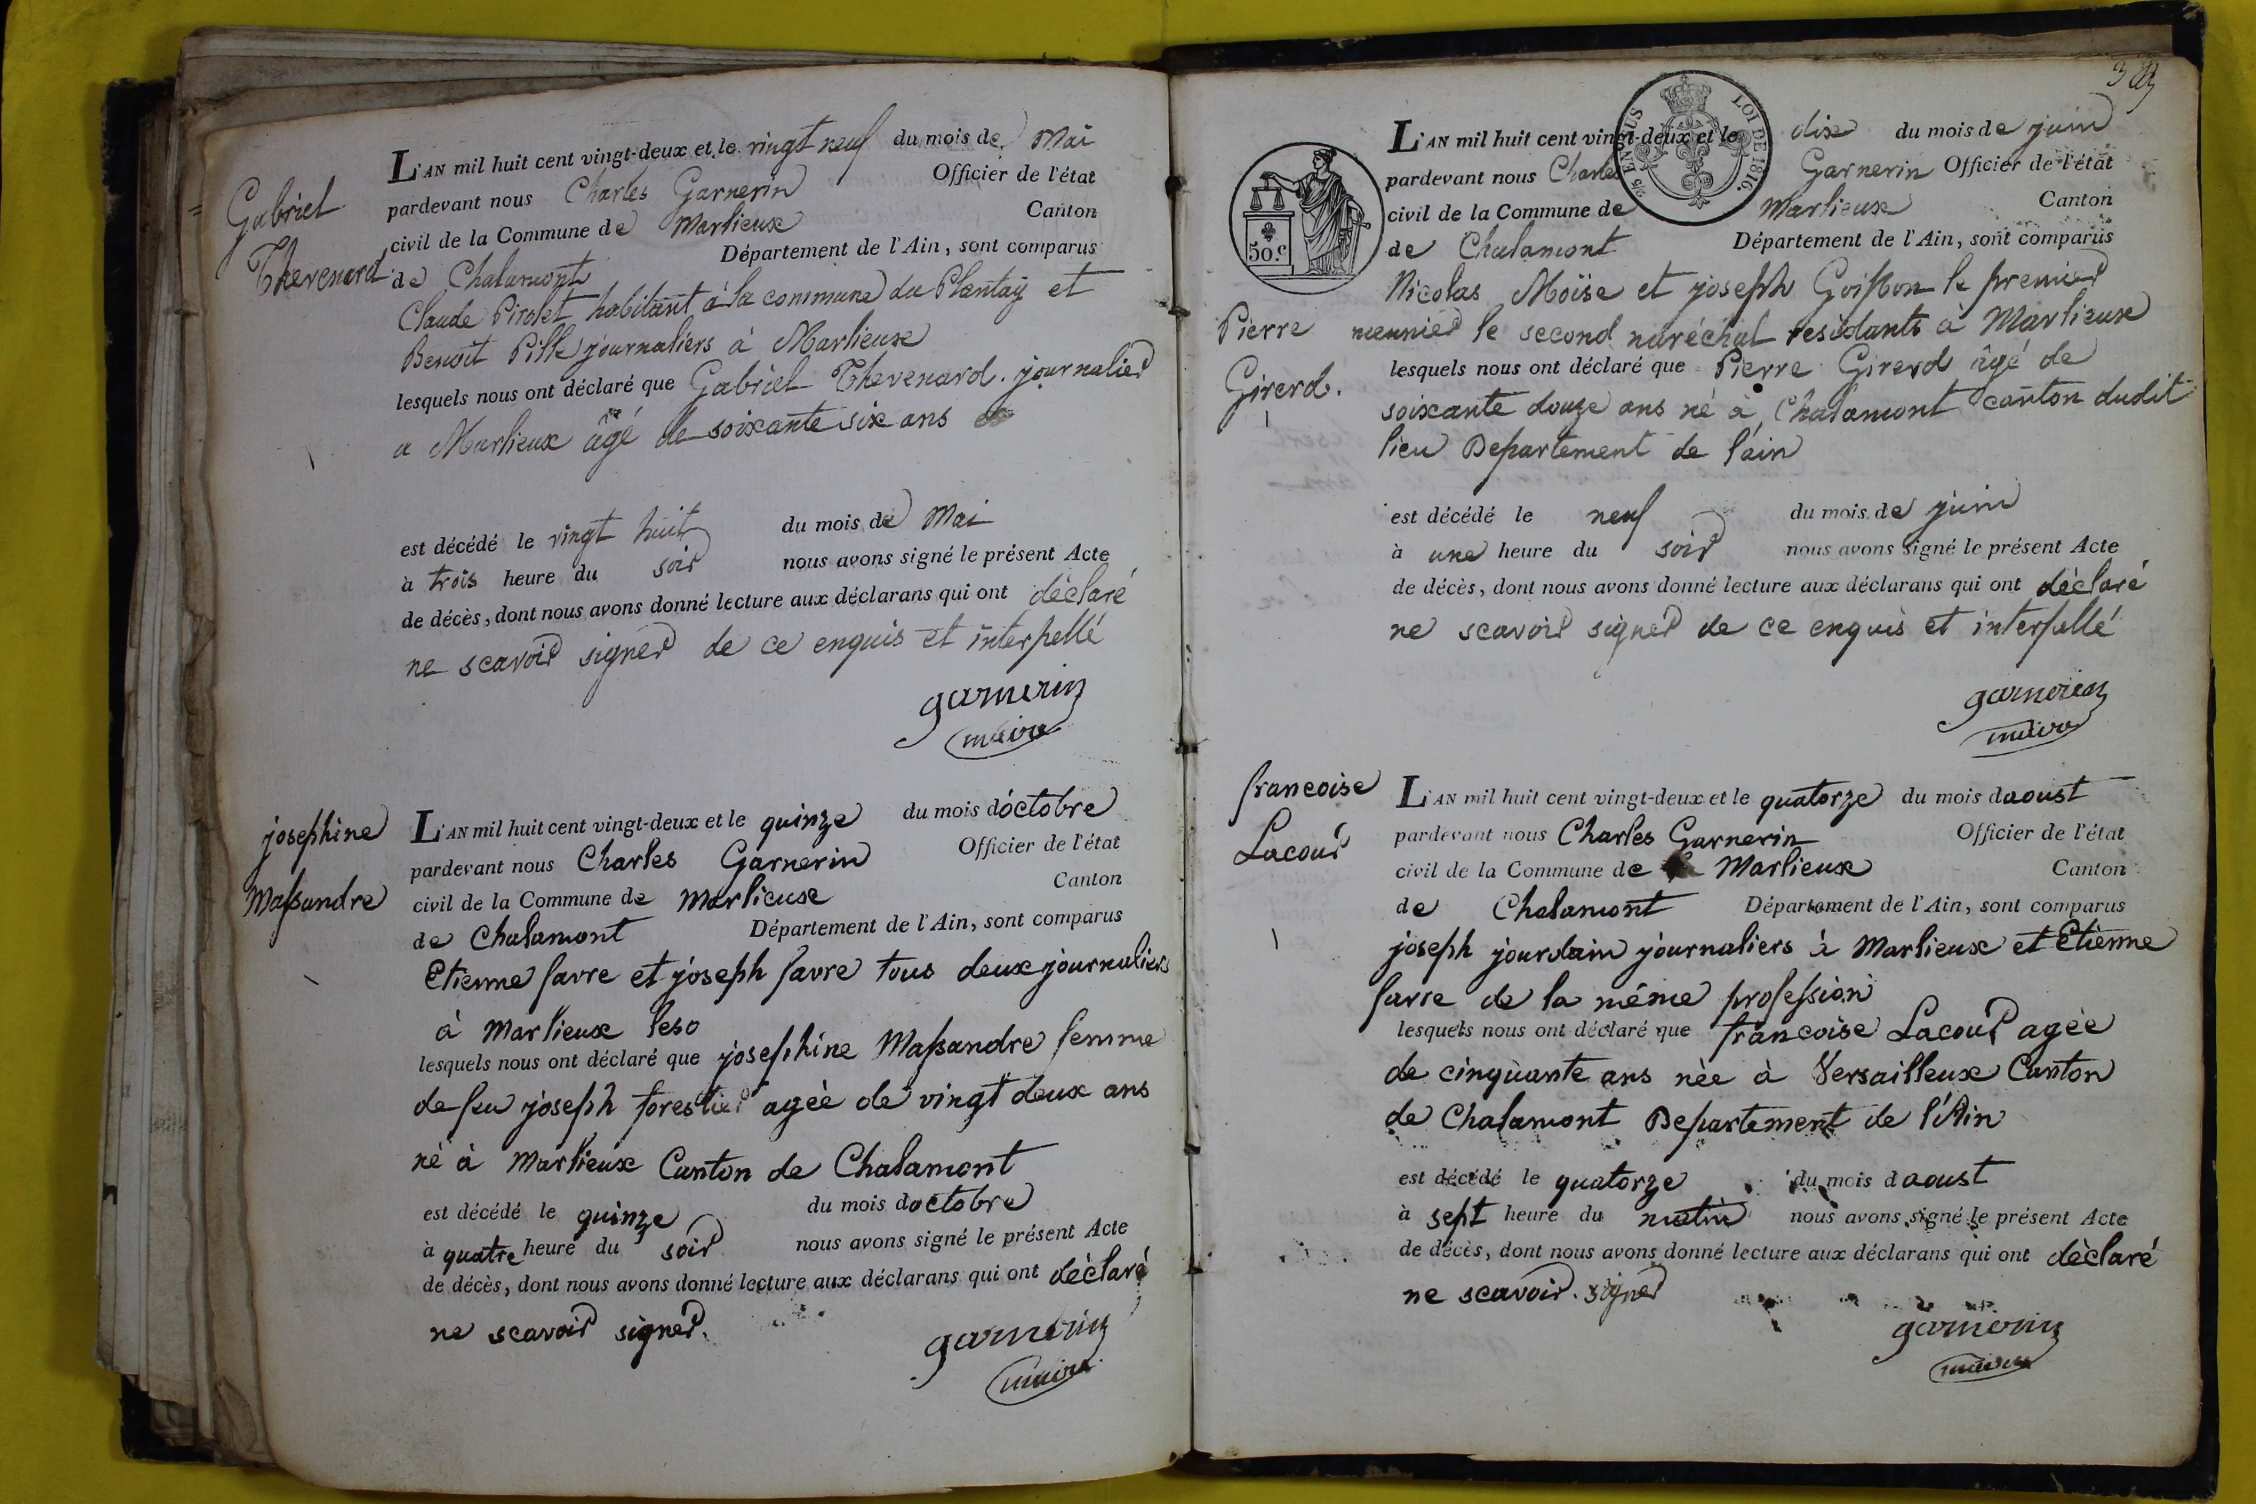 Gabriel
Thevenard
L'AN mil huit cent vingt-deux et le vingt neuf du mois de Mai
pardevant nous Charles Garnerin Officier de l'état
civil de la Commune de Marlieux Canton
de Chalamont Département de l'Ain, sont comparus
Claude Pirolet habitant à la commune du Plantay et
Benoit Pille journaliers à Marlieux
lesquels nous ont déclaré que Gabriel Thevenard. journalier
a Marlieux âgé de soixante six ans
est décédé le vingt huit du mois de Mai
à trois heure du soir nous avons signé le présent Acte
de décès, dont nous avons donné lecture aux déclarans qui ont déclaré
ne scavoir signer de ce enquis et interpellé
garnerin
maire
josephine
Massandre
L'AN mil huit cent vingt-deux et le quinze du mois d'octobre
pardevant nous Charles Garnerin Officier de l'état
civil de la Commune de Marlieux Canton
de Chalamont Département de l'Ain, sont comparus
Etienne favre et joseph favre tous deux journaliers
à Marlieux
lesquels nous ont déclaré que josephine Massandre femme
de feu joseph forestier agée de vingt deux ans
né à Marlieux Canton de Chalamont
est décédé le quinze du mois doctobre
à quatre heure du soir nous avons signé le présent Acte
de décès, dont nous avons donné lecture aux déclarans qui ont déclaré
ne scavoir signer.
garnerin
maire
LOI DE 1816.
EN SUS
50.c
Pierre
Girerd.
L'AN mil huit cent vingt-deux et le dix du mois de juin
pardevant nous Charles Garnerin Officier de l'état
civil de la Commune de Marlieux Canton
de Chalamont Département de l'Ain, sont comparus
Nicolas Moïse et joseph Goiffon le premier
meunier le second maréchal residants à Marlieux
lesquels nous ont déclaré que Pierre Girerd âgé de
soixante douze ans né à Chalamont canton dudit
lieu Departement de l'ain
est décédé le neuf du mois de juin
à une heure du soir nous avons signé le présent Acte
de décès, dont nous avons donné lecture aux déclarans qui ont déclaré
ne scavoir signer de ce enquis et interpellé
garnerin
maire
francoise
Lacour
L'AN mil huit cent vingt-deux et le quatorze du mois daoust
pardevant nous Charles Garnerin Officier de l'état
civil de la Commune de Marlieux Canton
de Chalamont Département de l'Ain, sont comparus
joseph jourdain journaliers à Marlieux et Etienne
favre de la même profession
lesquels nous ont déclaré que francoise Lacour agée
de cinquante ans née à Versailleux Canton
de Chalamont Departement de l'Ain
est décédé le quatorze du mois daoust
à sept heure du matin nous avons signé le présent Acte
de décès, dont nous avons donné lecture aux déclarans qui ont déclaré
ne scavoir signer
garnerin
maire